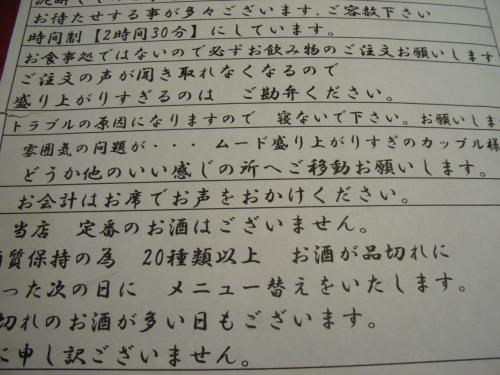 お待たせする事が多々ございます、ご容赦下さい
時間制【2時間30分】にしています。
お食事処ではないので必ずお飲み物のご注文お願いします
ご注文の声が聞き取れなくなるので
盛り上がりすぎるのは ご勘弁ください。
トラブルの原因になりますので 寝ないで下さい。お願いしま
雰囲気の問題が・・・ ムード盛り上がりすぎのカップル様
どうか他のいい感じの所へご移動お願いします。
お会計はお席でお声をおかけください。
当店 定番のお酒はございません。
質保持の為 20種類以上 お酒が品切れに
った次の日に メニュー替えをいたします。
切れのお酒が多い日もございます。
に申し訳ございません。